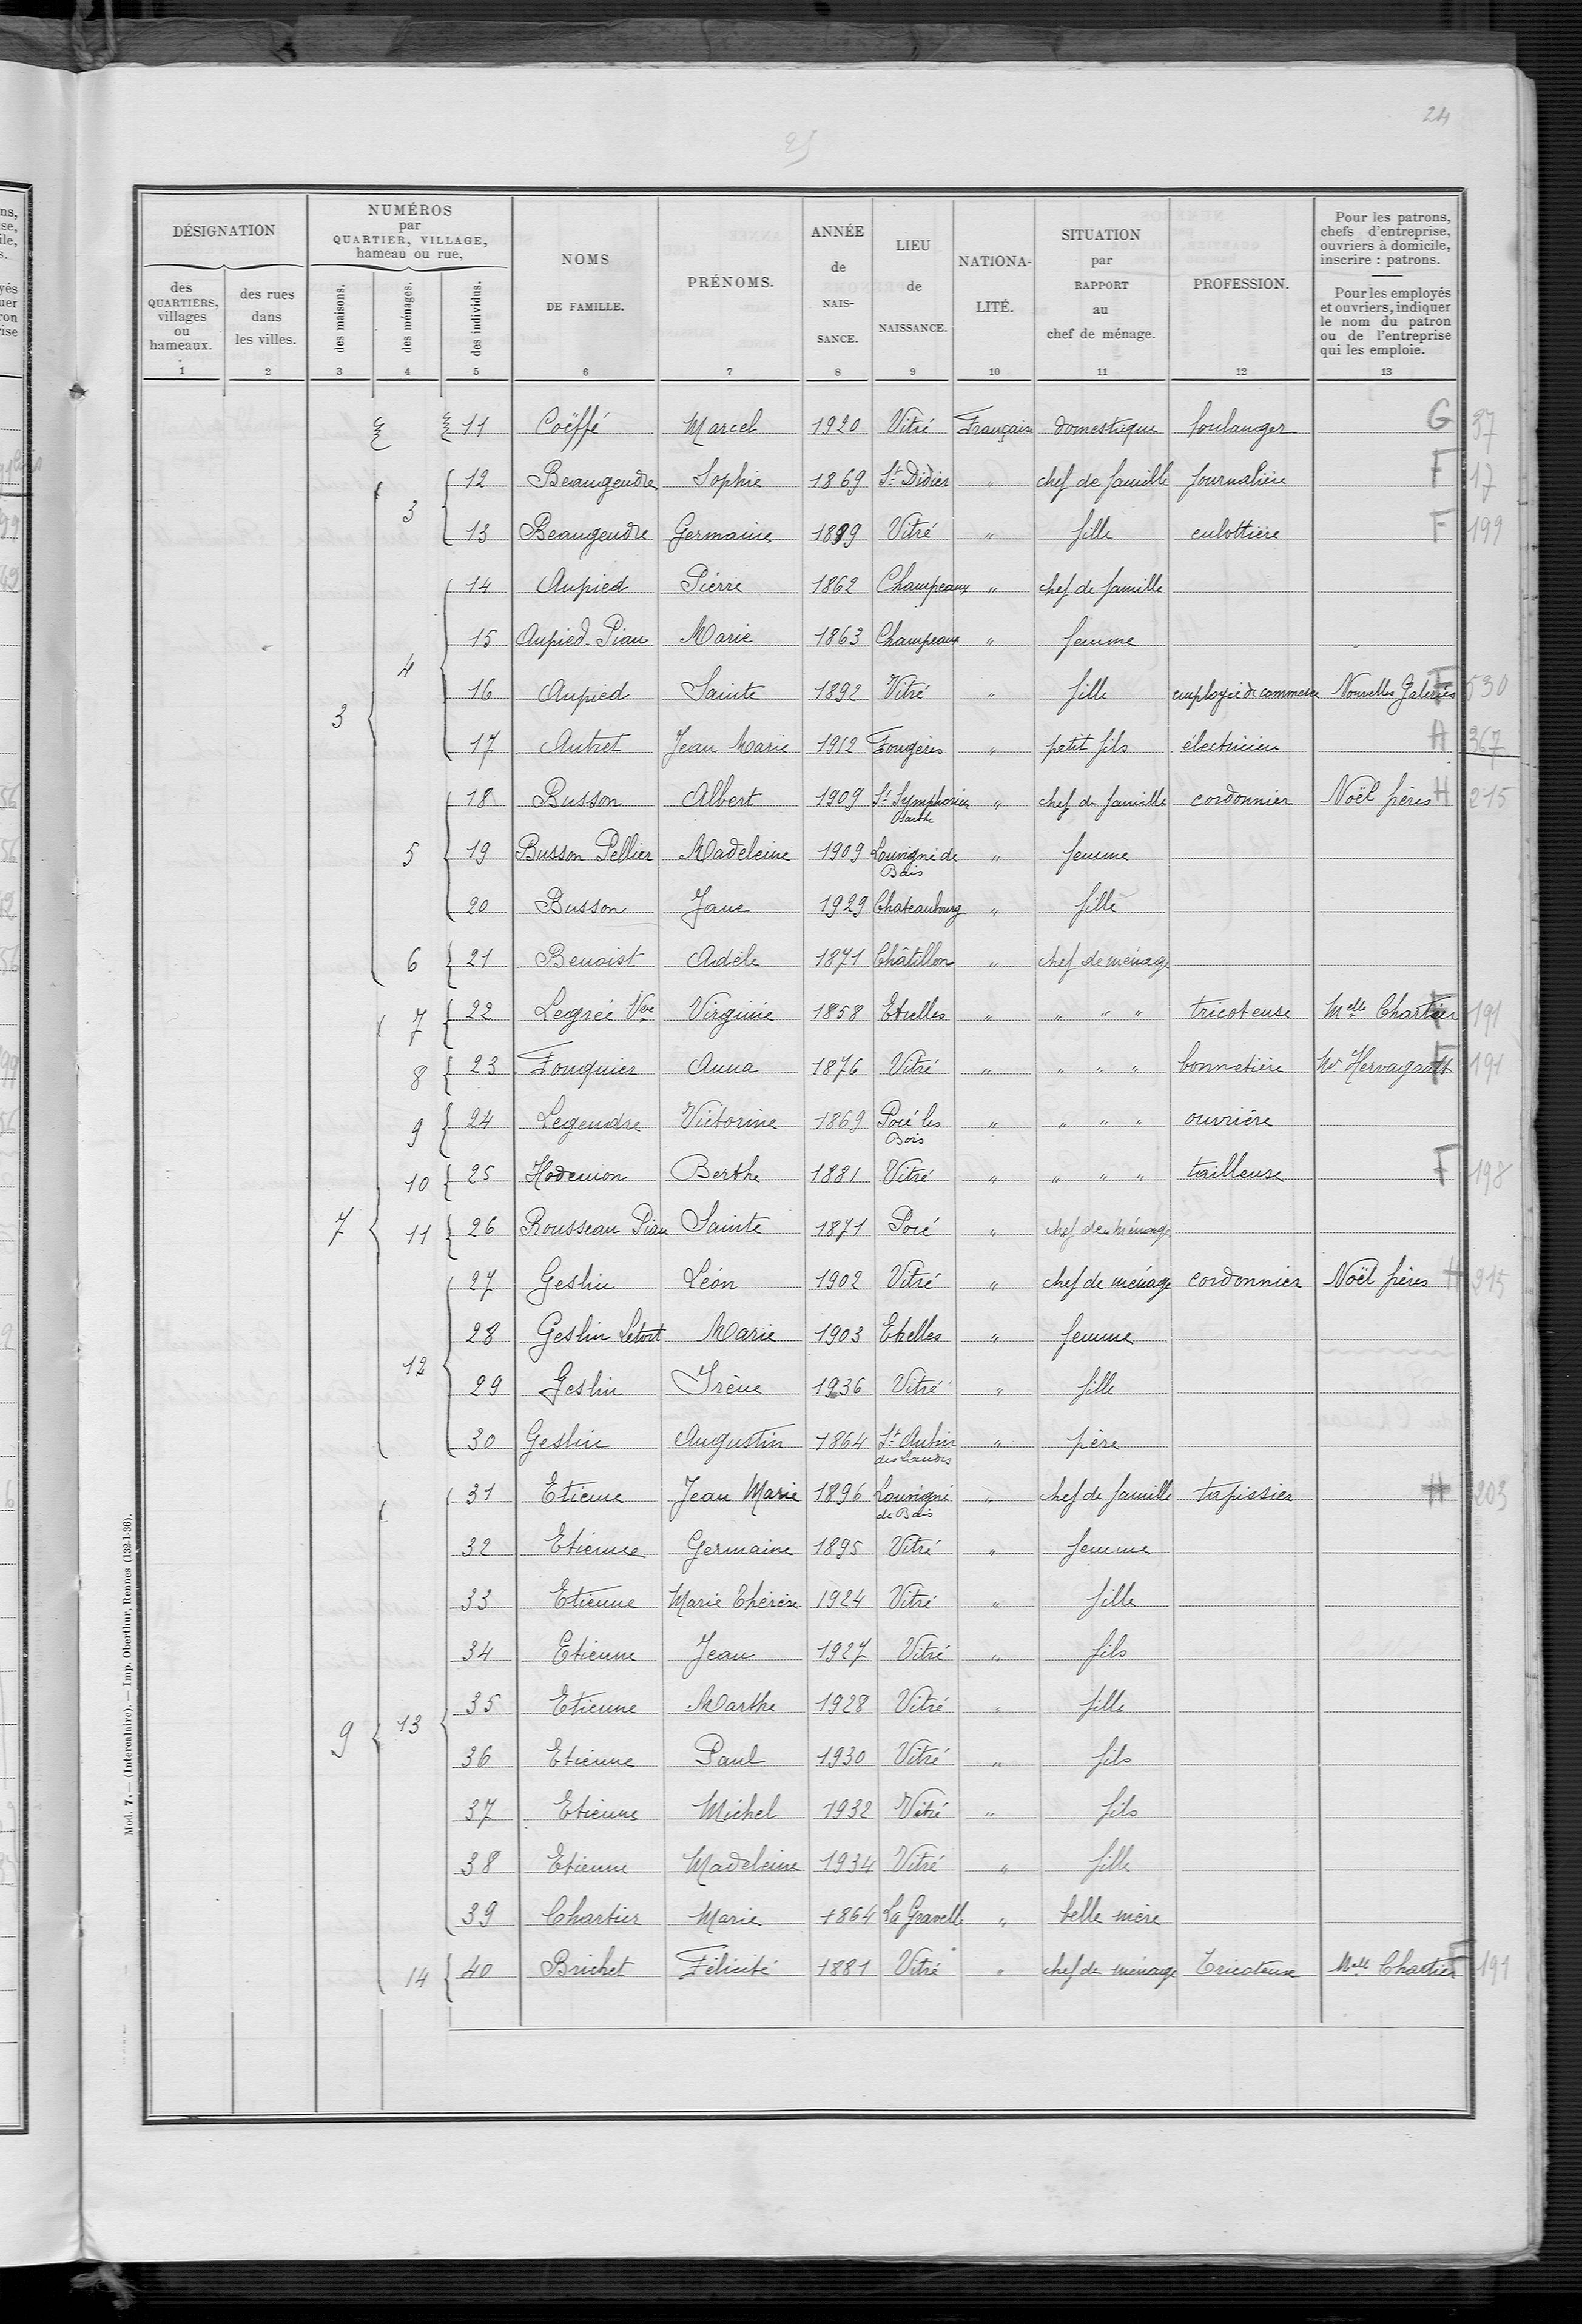 24
25
DÉSIGNATION
NUMÉROS par QUARTIER, VILLAGE, hameau ou rue,
NOMS DE FAMILLE.
PRÉNOMS.
ANNÉE de NAIS-SANCE.
LIEU de NAISSANCE.
NATIONA-LITÉ.
SITUATION par RAPPORT au chef de ménage.
PROFESSION.
Pour les patrons, chefs d'entreprise, ouvriers à domicile, inscrire : patrons.
Pour les employés et ouvriers, indiquer le nom du patron ou de l'entreprise qui les emploie.
des QUARTIERS, villages ou hameaux.
des rues dans les villes.
des maisons.
des ménages.
des individus.
1 2 3 4 5 6 7 8 9 10 11 12 13
11 Coëffé Marcel 1920 Vitré Française domestique boulanger G 37
3 12 Beaugendre Sophie 1869 St Didier " chef de famille journalière F 17
13 Beaugendre Germaine 1899 Vitré " fille culottière F 199
3 4 14 Aupied Pierre 1862 Champeaux " chef de famille
15 Aupied-Piau Marie 1863 Champeaux " femme
16 Aupied Sainte 1892 Vitré " fille employée de commerce Nouvelles Galeries F 530
17 Autret Jean Marie 1912 Fougères " petit fils électricien H 367
5 18 Busson Albert 1909 St Symphorien Sarthe " chef de famille cordonnier Noël frères H 215
19 Busson Pellier Madeleine 1909 Louvigné de Bais " femme
20 Busson Jane 1929 Chateaubourg " fille
6 21 Benoist Adèle 1871 Châtillon " chef de ménage
7 22 Legrée Vve Virginie 1858 Etrelles " " " " tricoteuse Melle Chartier F 191
8 23 Fouquier Anna 1876 Vitré " " " " bonnetière Mr Hervagault F 191
9 24 Legendre Victorine 1869 Pocé les Bois " " " " ouvrière
10 25 Hodemon Berthe 1881 Vitré " " " " tailleuse F 198
7 11 26 Rousseau Piau Sainte 1871 Pocé " chef de ménage
12 27 Geslin Léon 1902 Vitré " chef de ménage cordonnier Noël frères H 215
28 Geslin Letort Marie 1903 Etrelles " femme
29 Geslin Irène 1936 Vitré " fille
30 Geslin Augustin 1864 St Aubin des Landes " père
31 Etienne Jean Marie 1896 Louvigné de Bais " chef de famille tapissier H 203
32 Etienne Germaine 1895 Vitré " femme
33 Etienne Marie Thérèse 1924 Vitré " fille
34 Etienne Jean 1927 Vitré " fils
9 13 35 Etienne Marthe 1928 Vitré " fille
36 Etienne Paul 1930 Vitré " fils
37 Etienne Michel 1932 Vitré " fils
38 Etienne Madeleine 1934 Vitré " fille
39 Chartier Marie 1864 La Gravelle " belle mère
14 40 Brichet Félicité 1881 Vitré " chef de ménage Tricoteuse Melle Chartier F 191
Mod. 7. — (Intercalaire). — Imp. Oberthur, Rennes (132-1-36).